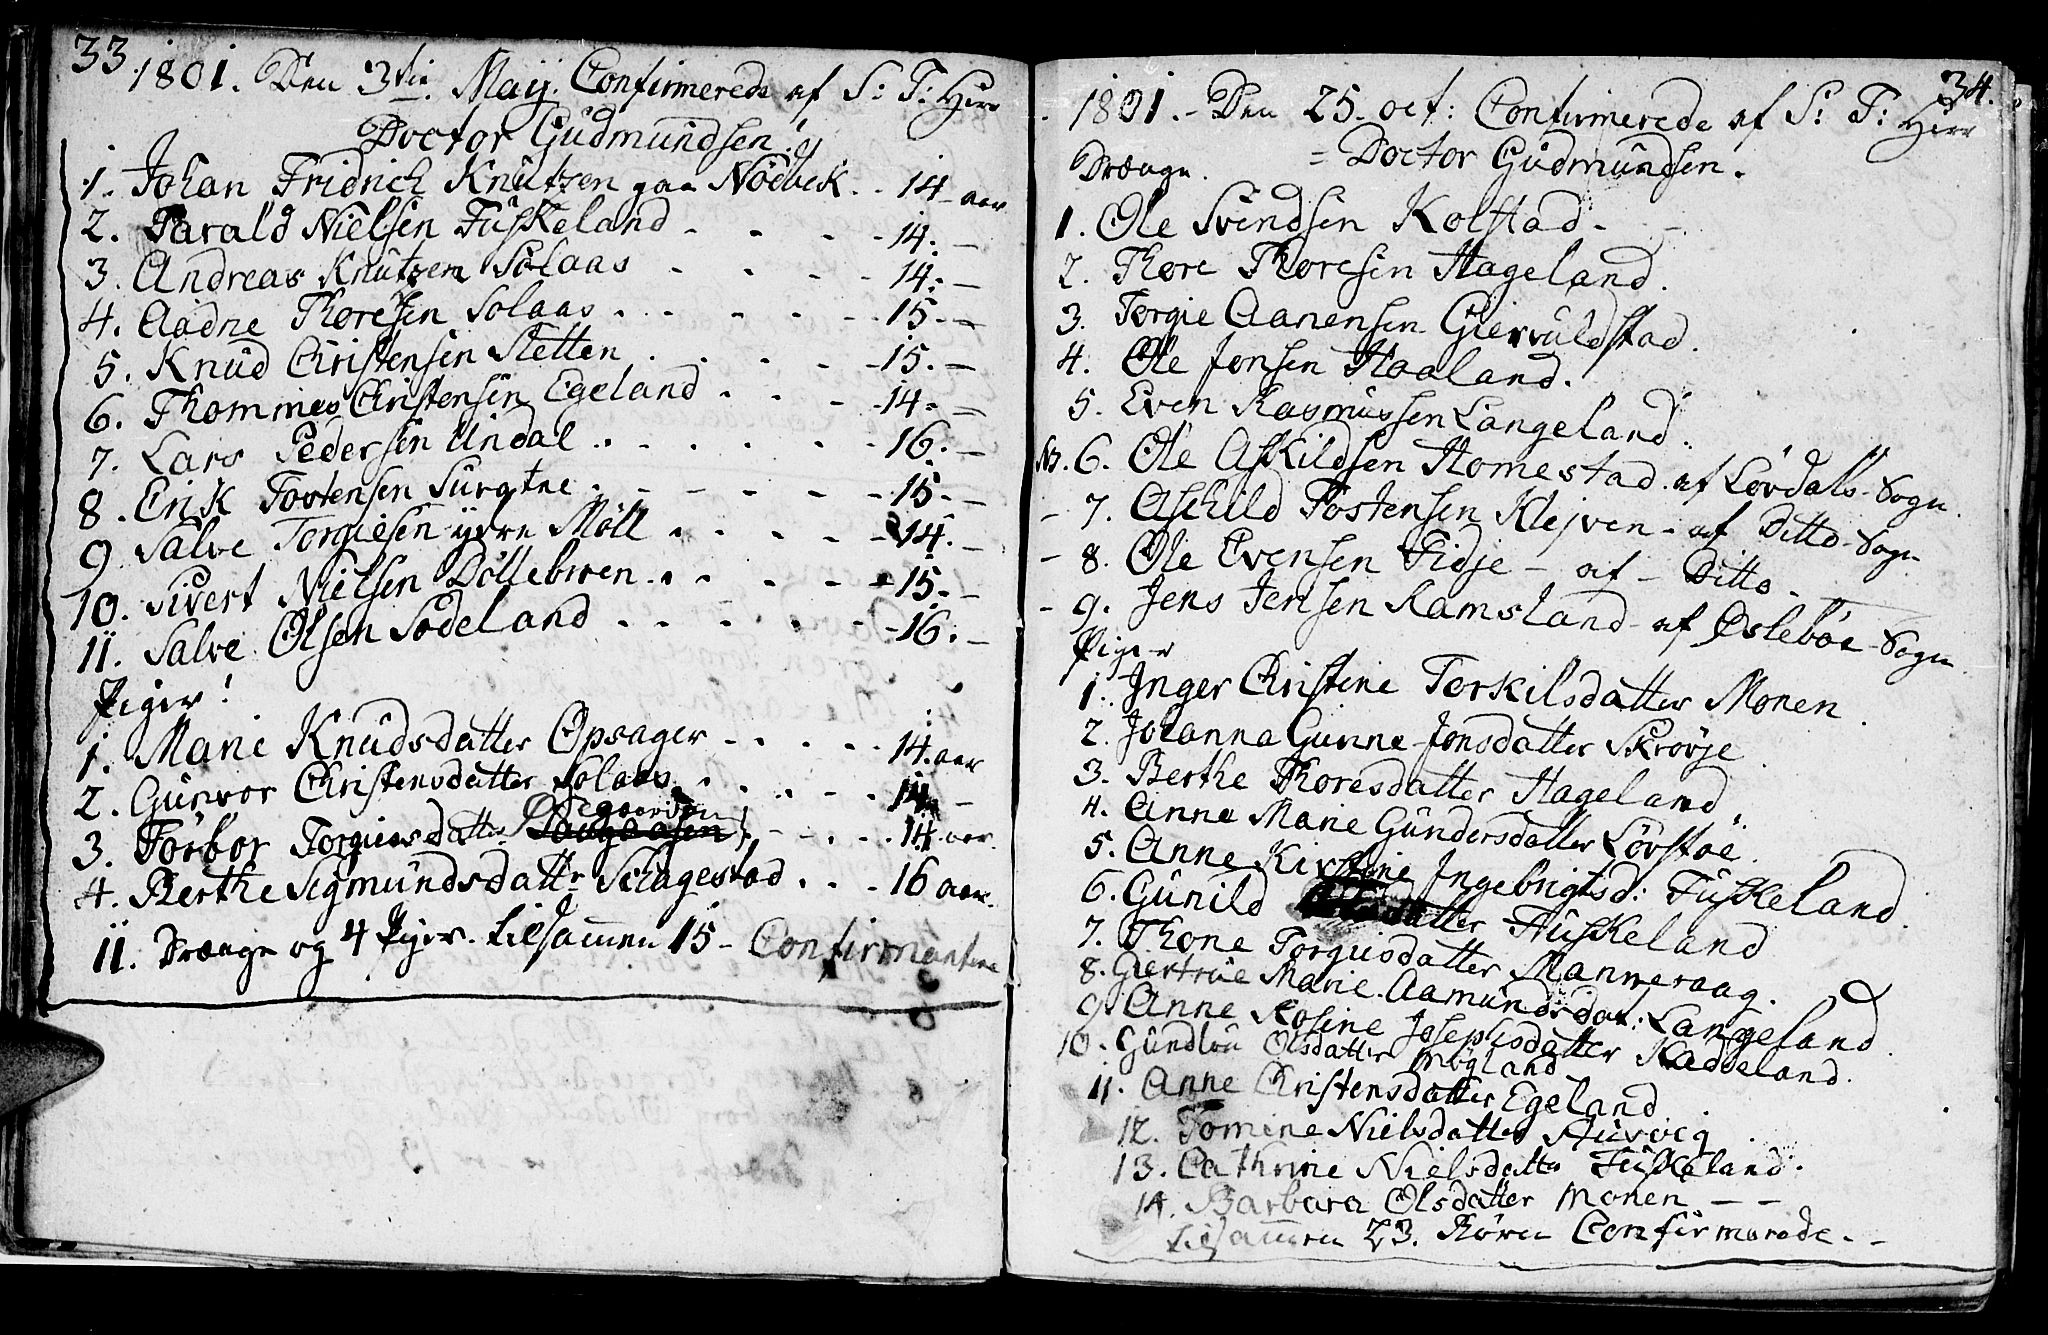 33.
1801. Den 3die Maij. Confirmerede af S: T: Herr
Doctor Gudmundsen!
1. Johan Fridrich Knutzen paa Nödvek . . 14 aar
2. Tarald Nielsen Fuskeland - - - - 14. -
3. Andreas Knutzen Solaas - - - - 14. -
4. Aadne Thoresen Solaas . - - - - 15. -
5. Knud Christensen Sletten . . - - 15. -
6. Thommes Christensen Egeland . - - - 14. -
7. Lars Pedersen Undal . - - - - 16. -
8. Erik Tostensen - - - - - 15. -
9 Salve Torgiesen ydre Möll . . - - - 14. -
10. Sivert Nielsen Döllebroen . . - - - 15. -
11. Salve Olsen Södeland . . . - - - 16. -
Piger!
1. Marie Knudsdatter Opsager - - . . . 14. aar
2. Gunvor Christensdatter Solaas . . . - - . 14. -
3. Torbor Torgiusdatter - - . . . 14 aar.
4. Berthe Sigmundsdattr Schagestad . . . 16 aar.
11. Drænge og 4 Piger. tilsammen 15 - Confirmantere
34.
1801. - Den 25. oct: Confirmerede af S: T: Herr
Drænge. = Doctor Gudmundsen.
1. Ole Svendsen Kolstad - -
2. Thore Thoresen Hageland.
3. Torgie Aanensen Giervuldstad.
4. Ole Jonsen Haaland.
5. Even Rasmussen Langeland.
No. 6. Ole Askildsen Homestad af Lövdals - Sogn.
- 7. Aschild Tostensen Klejven - af Ditto - Sogn
- 8. Ole Evensen Fidje - af - Ditto -
- 9. Jens Jensen Ramsland - af Ösleböe - Sogn
Piger
1. Inger Christine Torkilsdatter Monen.
2. Johanna Gunne Jonsdatter Skrövje.
3. Berthe Thoresdatter Hageland.
4. Anne Marie Gundersdatter Lövstöe.
5. Anne Kirstine Ingebrigtsd: Fuskeland.
6. Gunild datter Fuskeland
7. Thone Torgiusdatter Manneraag.
8. Giertrue Marie Aamundsdat: Langeland
9. Anne Rosine Josephsdatter Kaddeland.
10. Gundlou Olsdatter Mögland
11. Anne Christensdatter Egeland
12. Tomine Nielsdatter Stuvoeg
13. Cathrine Nielsdatter Fuskeland.
14. Barbara Olsdatter Monen - -
tilsammen 23. Börn Confirmerede - -